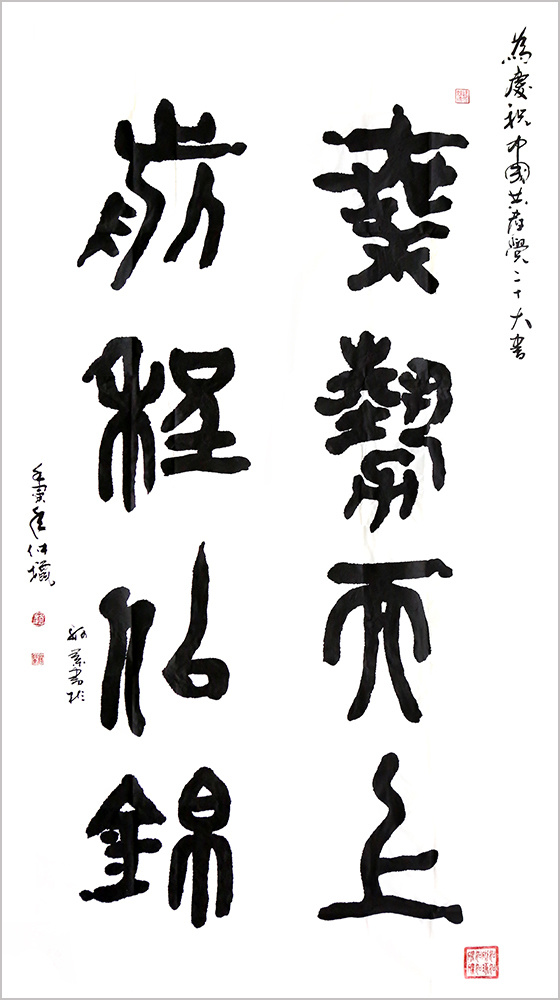 為慶祝中國共產黨二十大書
乘勢而上
前程似錦
書於
壬寅年仲